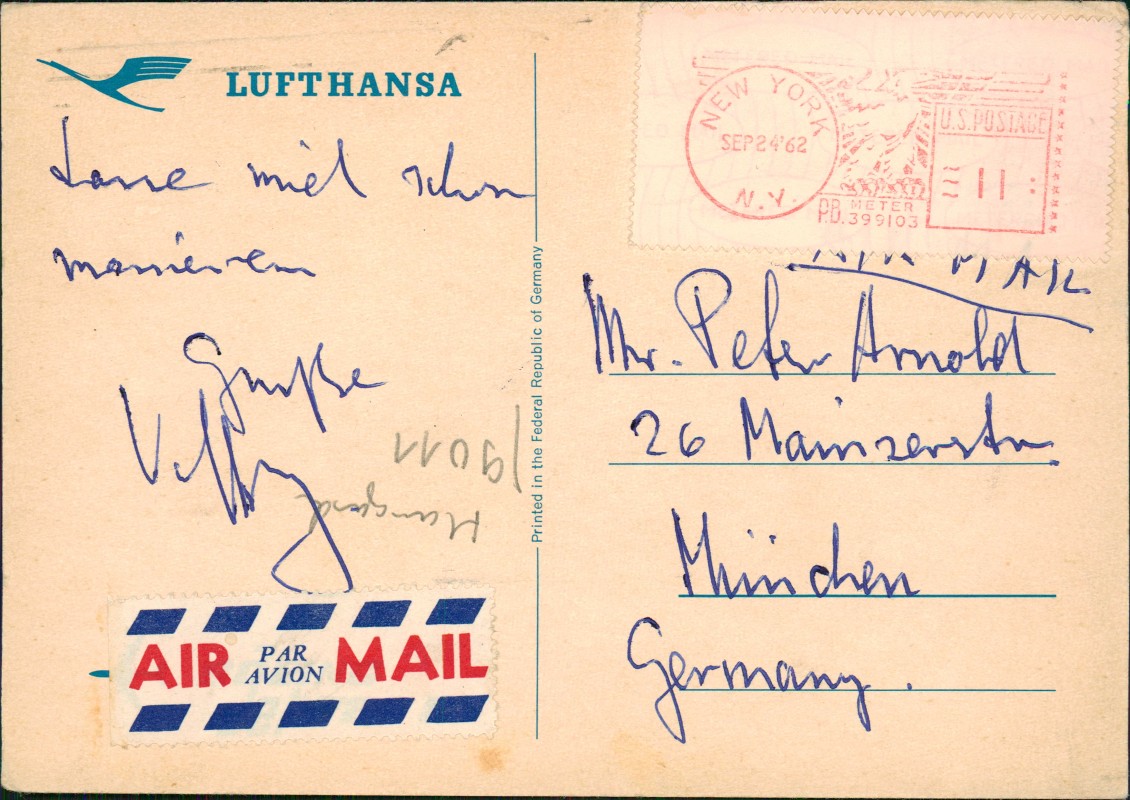 LUFTHANSA
Lasse mich schon
massieren
Grüße
AIR PAR AVION MAIL
Printed in the Federal Republic of Germany
NEW YORK
SEP 24 '62
N.Y.
U.S. POSTAGE
11
P.B. METER
399103
AIR MAIL
Mr. Peter Arnold
26 Mainzerstr.
München
Germany.